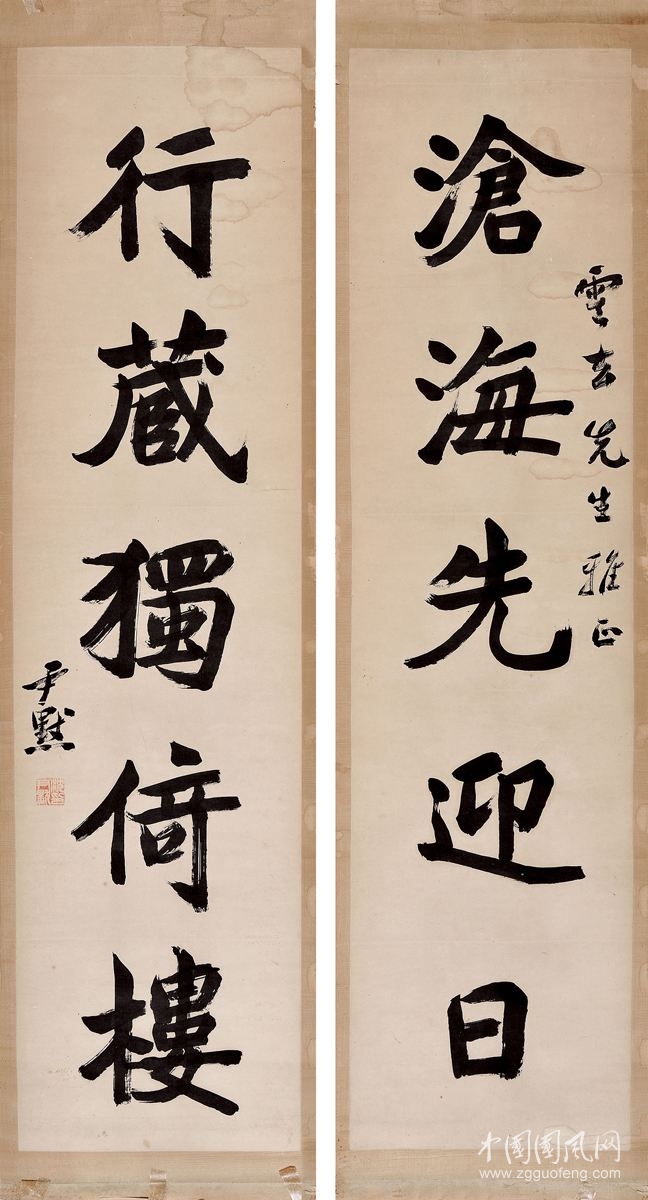 滄海先迎日
雲去先生雅正
行藏獨倚樓
尹默
中国国风网
www.zgguofeng.com